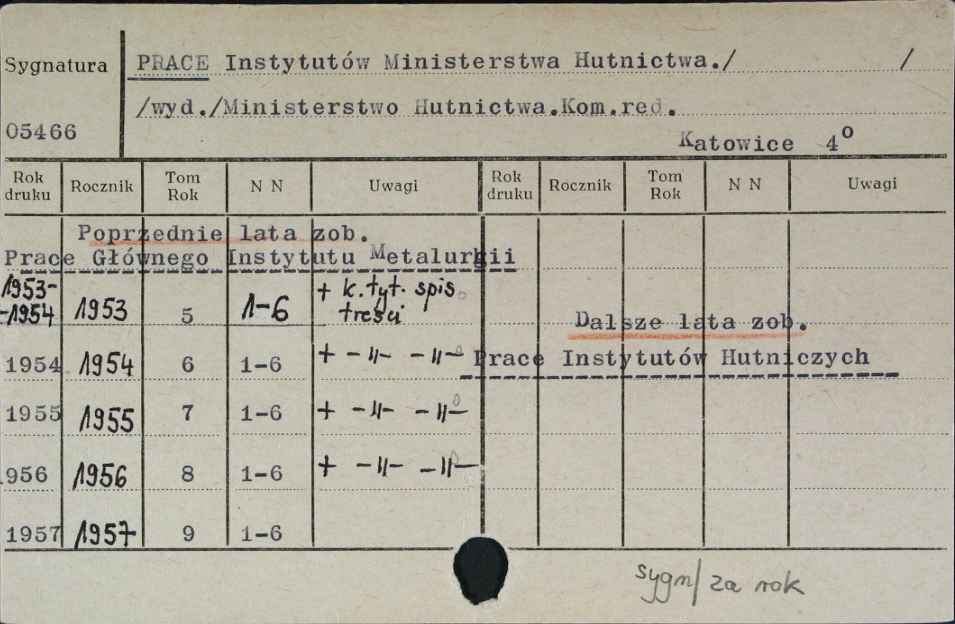 Sygnatura PRACE Instytutów Ministerstwa Hutnictwa./ /
/wyd./Ministerstwo Hutnictwa.Kom.red.
05466 Katowice 4o
Rok druku Rocznik Tom Rok N N Uwagi Rok druku Rocznik Tom Rok N N Uwagi
Poprzednie lata zob.
Prace Głównego Instytutu Metalurgii
1953-
-1954 1953 5 1-6 + k.tyt. spis
treści
Dalsze lata zob.
1954 1954 6 1-6 + -„- -„- Prace Instytutów Hutniczych
1955 1955 7 1-6 + -„- -„-
956 1956 8 1-6 + -„- -„-
1957 1957 9 1-6
sygn/ za rok